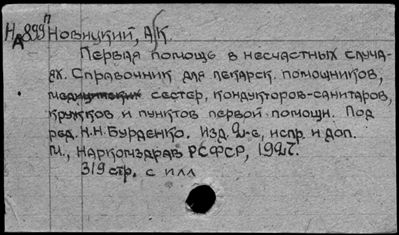 НА 899 п
Новицкий, А. К.
Первая помощь в несчастных случа-
ях. Справочник для лекарск. помощников,
медицинских сестер, кондукторов-санитаров,
кружков и пунктов первой помощи. Под
ред. Н.Н. Бурденко. Изд. 2-е, испр. и доп.
М., Наркомздрав РСФСР, 1927.
319 стр. с илл